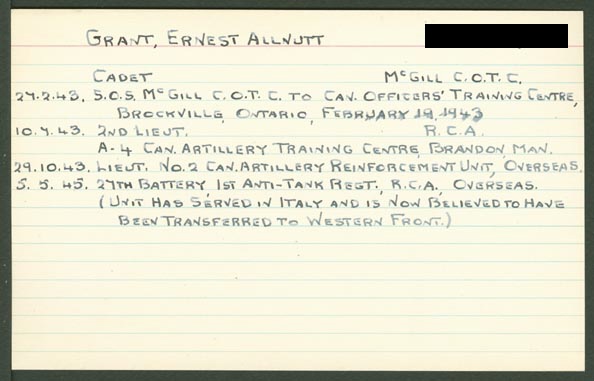 GRANT, ERNEST ALLNUTT
CADET McGILL C.O.T.C.
27.2.43. S.O.S. McGILL C.O.T.C. TO CAN. OFFICERS' TRAINING CENTRE,
BROCKVILLE, ONTARIO, FEBRUARY 19, 1943
10.7.43. 2ND LIEUT. R.C.A.
A-4 CAN. ARTILLERY TRAINING CENTRE, BRANDON, MAN.
29.10.43. LIEUT. NO.2 CAN. ARTILLERY REINFORCEMENT UNIT, OVERSEAS.
5.5.45. 27TH BATTERY, 1ST ANTI-TANK REGT., R.C.A., OVERSEAS.
(UNIT HAS SERVED IN ITALY AND IS NOW BELIEVED TO HAVE
BEEN TRANSFERRED TO WESTERN FRONT.)